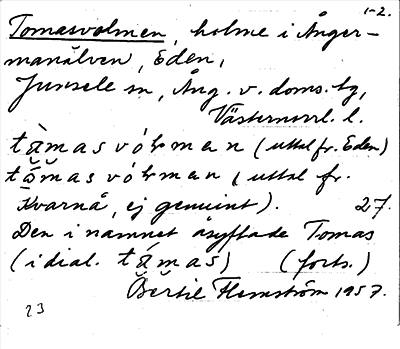 1-2.
Tomasvolmen, holme i Ånger-
manälven, Eden,
Junsele sn, Ång. v. doms. tg,
Västernorrl. l.
tàmas vólman (uttal fr. Eden)
tǻmas vólman (uttal fr.
Kvarnå, ej genuint). 27.
Den i namnet åsyftade Tomas
(i dial. támas) (forts.)
Bertil Flemström 1957.
23